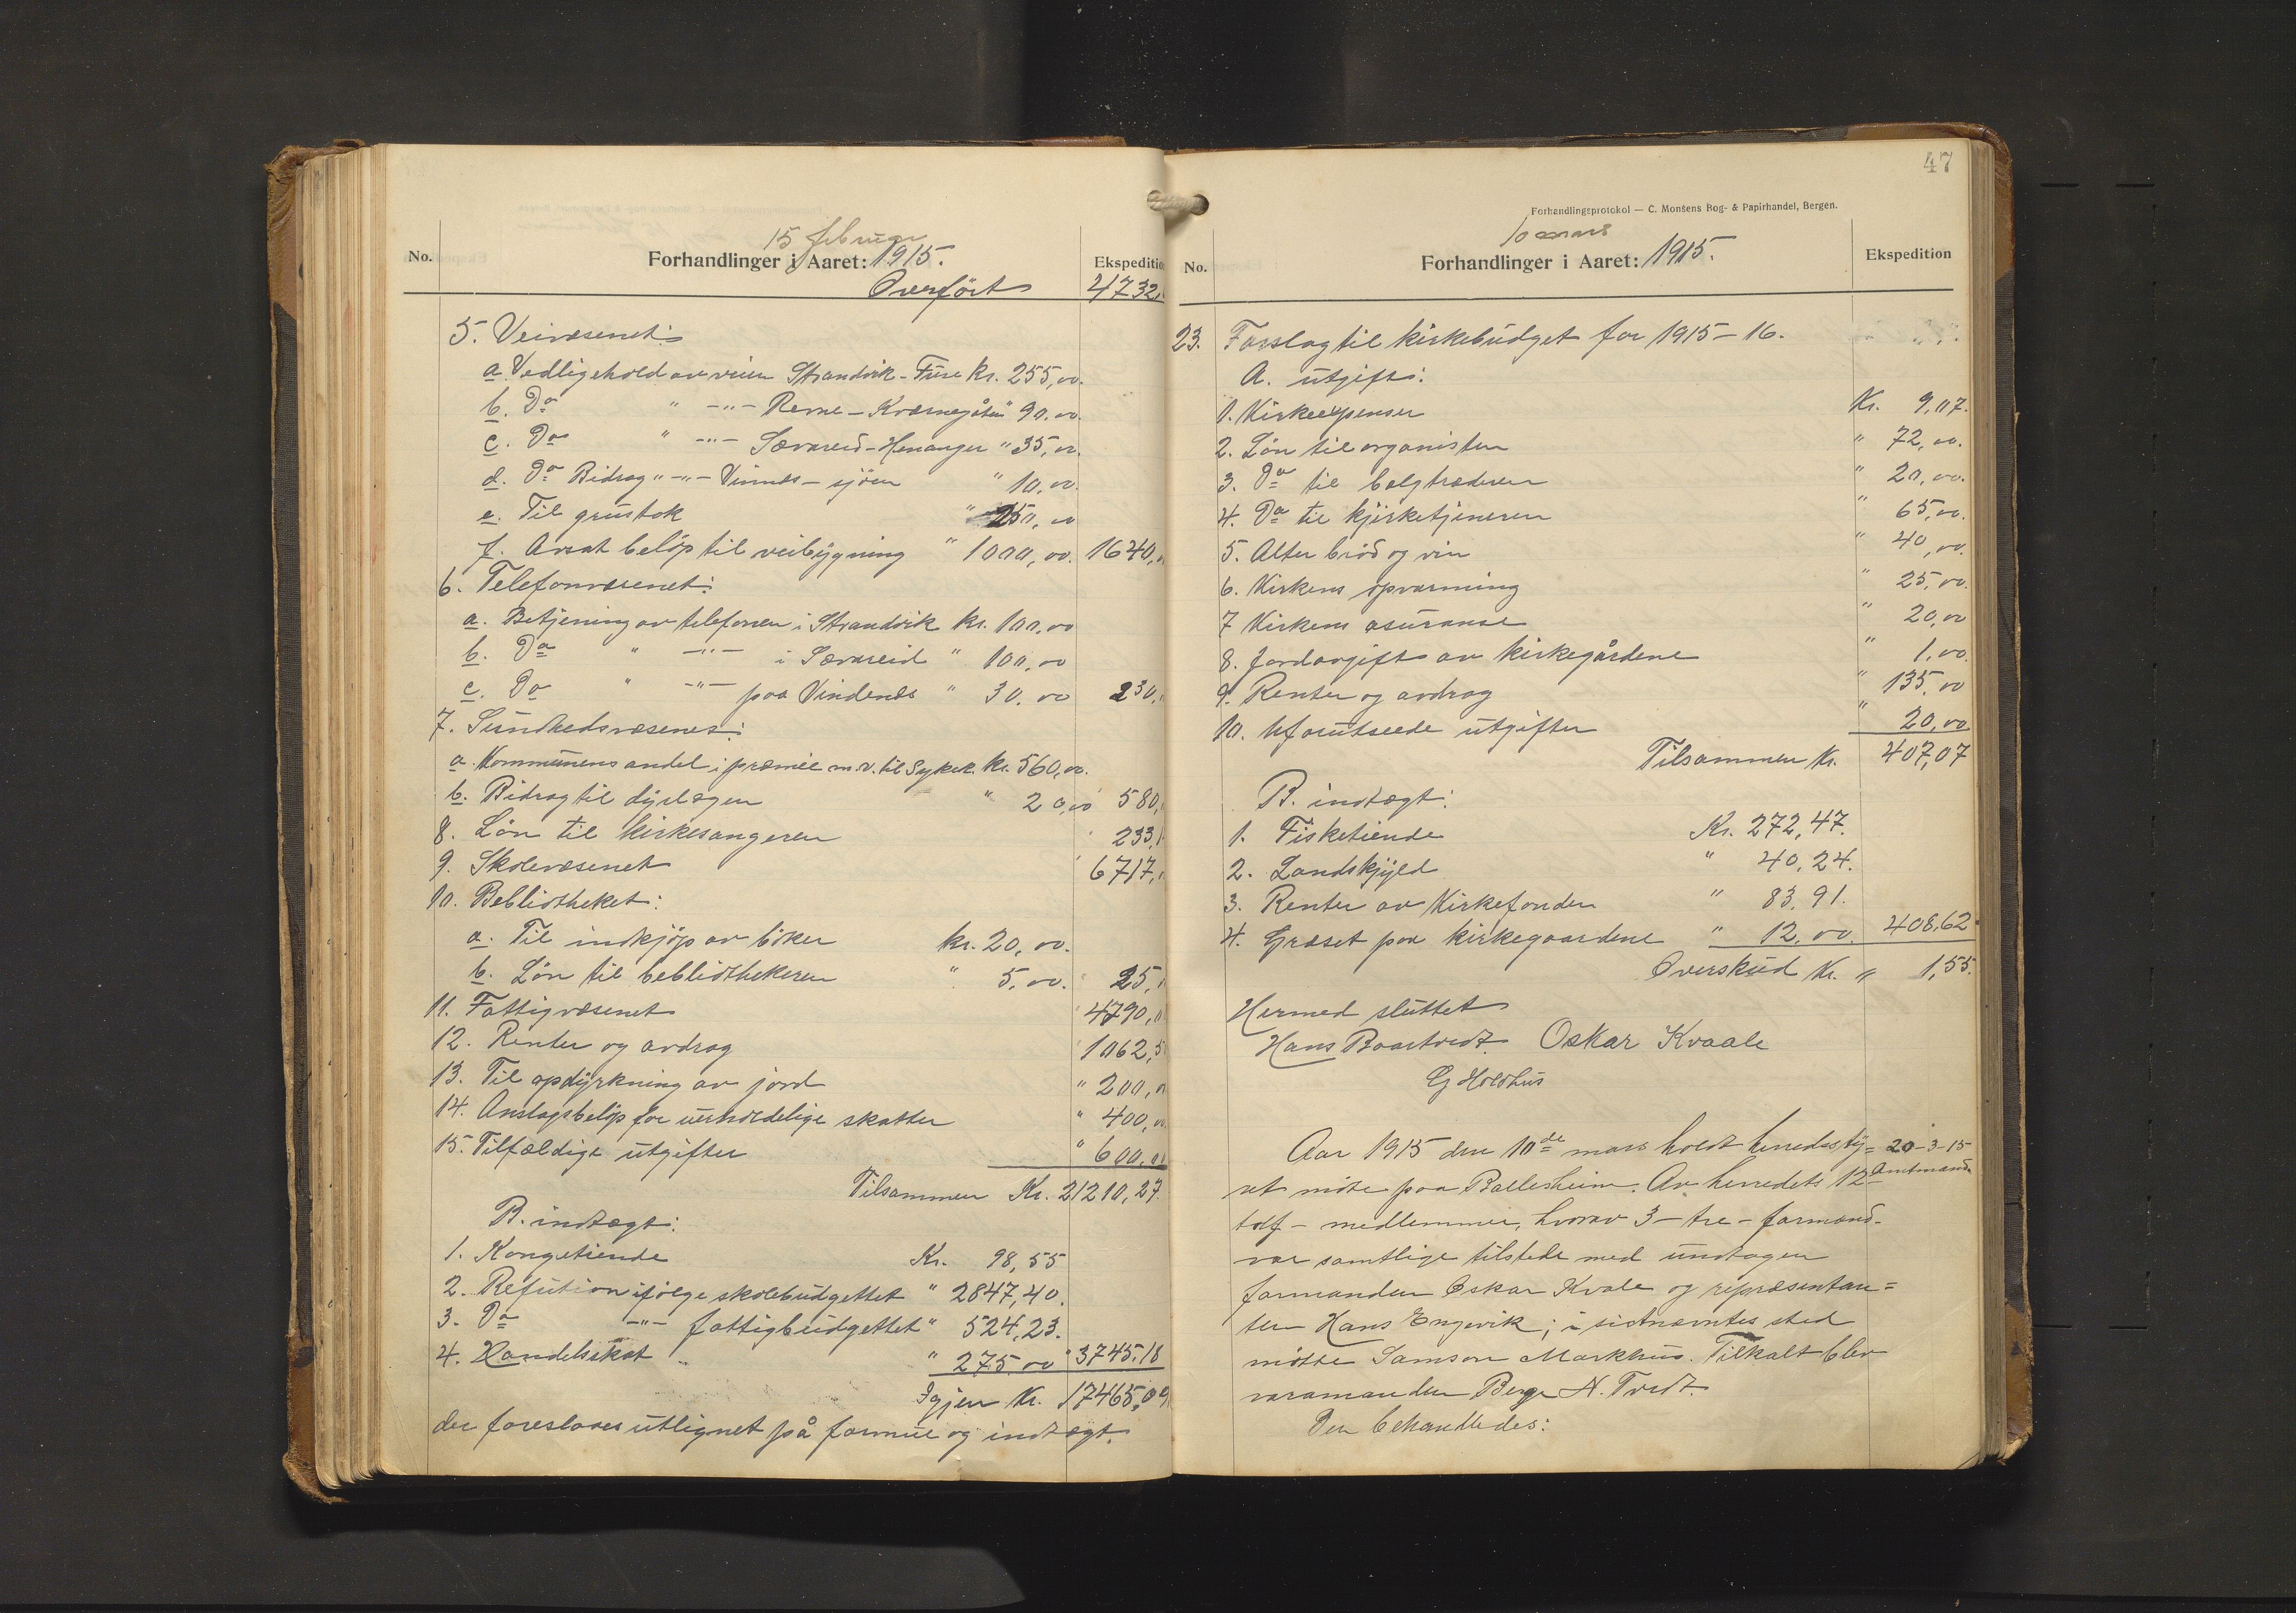 15 februar
No. Forhandlinger i Aaret: 1915. Ekspedition
Overført 4732,
5. Veivæsenet:
a. Vedligehold av veien Strandvik - Fuse Kr. 255,00.
b. Do " -"- Revne - Kvernegåten " 90.00.
c. Do " -"- Sævareid - Henanger " 35,00.
d. Do Bidrag " -"- Vinnes - sjöen " 10,00.
e. Til grustak " 250,00
f. Avsat beløp til veibygning " 1000,00. 1640,
6. Telefonvæsenet:
a. Betjening av telefonen i Strandvik Kr. 100,00
b. Do " -"- i Sævareid " 100,00
c. Do " -"- paa Vindenes " 30.00 230,
7. Sundhedsvæsenet:
a. Kommunens andel i præmie m.v. til Sykek. Kr. 560,00.
b. Bidrag til dyrlægen " 20,00 580,
8. Løn til kirkesangeren 233,
9. Skolevæsenet 6717,
10. Bebliotheket:
a. Til indkjøp av böker kr. 20,00.
b. Løn til bebliothekeren " 5,00. 25,
11. Fattigvæsenet 4790,
12. Renter og avdrag 1062,5
13. Til opdyrkning av jord " 200,
14. Anslagsbeløp for uerholdelige skatter " 400,
15. Tilfældige utgifter " 600.00
Tilsammen Kr. 21210,27.
B. indtægt:
1. Kongetiende Kr. 98,55
2. Refution ifølge skolebudgettet " 2847,40.
3. Do -"- fattigbudgettet " 524,23.
4. Handelsskat " 275.00 " 3745.18
Igjen Kr. 17465,09
der foreslaaes utlignet på formue og indtægt.
47
Forhandlingsprotokol — C. Monsens Bog- & Papirhandel, Bergen.
10 mars
No. Forhandlinger i Aaret: 1915. Ekspedition
23. Forslag til kirkebudget for 1915 - 16.
A. utgift:
1. Kirkeexpenser Kr. 9,07.
2. Løn til organisten " 72,00.
3. Do til belgtræderen " 20,00.
4. Do til kjirketjeneren " 65,00.
5. Alter bröd og vin " 40,00.
6. Kirkens opvarming " 25,00.
7 Kirkens asuranse " 20,00
8. Jordavgift av kirkegårdene " 1,00.
9. Renter og avdrag " 135,00
10. Uforutseede utgifter " 20,00
Tilsammen Kr. 407,07
B. indtægt:
1. Fisketiende Kr. 272,47.
2. Landskyld " 40,24.
3. Renter av Kirkefonden " 83,91.
4. Græset paa kirkegaardene " 12,00. 408,62
Overskud Kr. " 1,55.
Hermed sluttet
Hans Baartvedt. Oskar Kvaale
G Holdhus
Aar 1915 den 10de mars holdt herredssty= 20-3-15
ret møte paa Ballesheim. Av herredets 12 - Amtmand
tolf - medlemmer, hvorav 3 - tre - formænd -
var samtlige tilstede med undtagen
formanden Oskar Kvale og repræsentan=
ten Hans Engevik; i sistnævntes sted
møtte Samson Markhus. Tilkalt blev
varamanden Berge N. Tvedt.
Der behandledes: